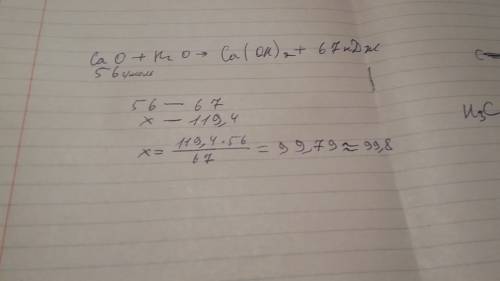 CaO + H₂O → Ca(OH)₂ + 67 кДж
56 г/моль
56 — 67
x — 119,4
x = 119,4 · 56 / 67 = 99,79 ≈ 99,8
H₃C